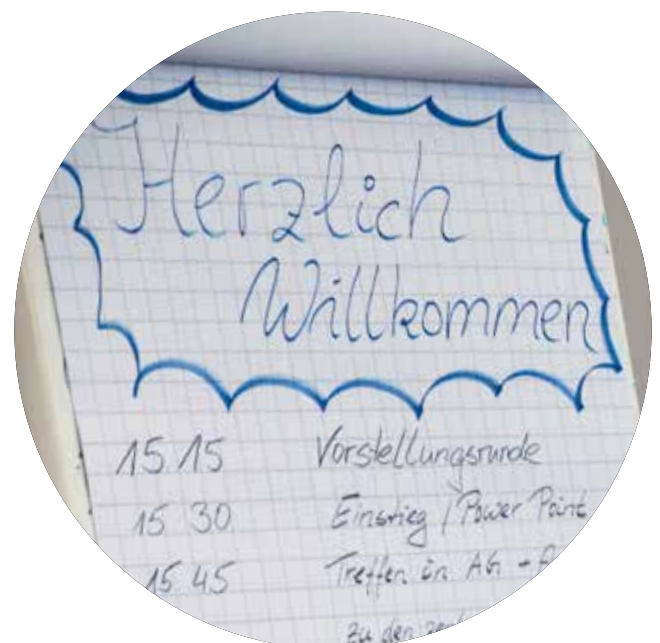 Herzlich
Willkommen
15 15 Vorstellungsrunde
15 30 Einstieg / Power Point
15 45 Treffen in AG -
zu den